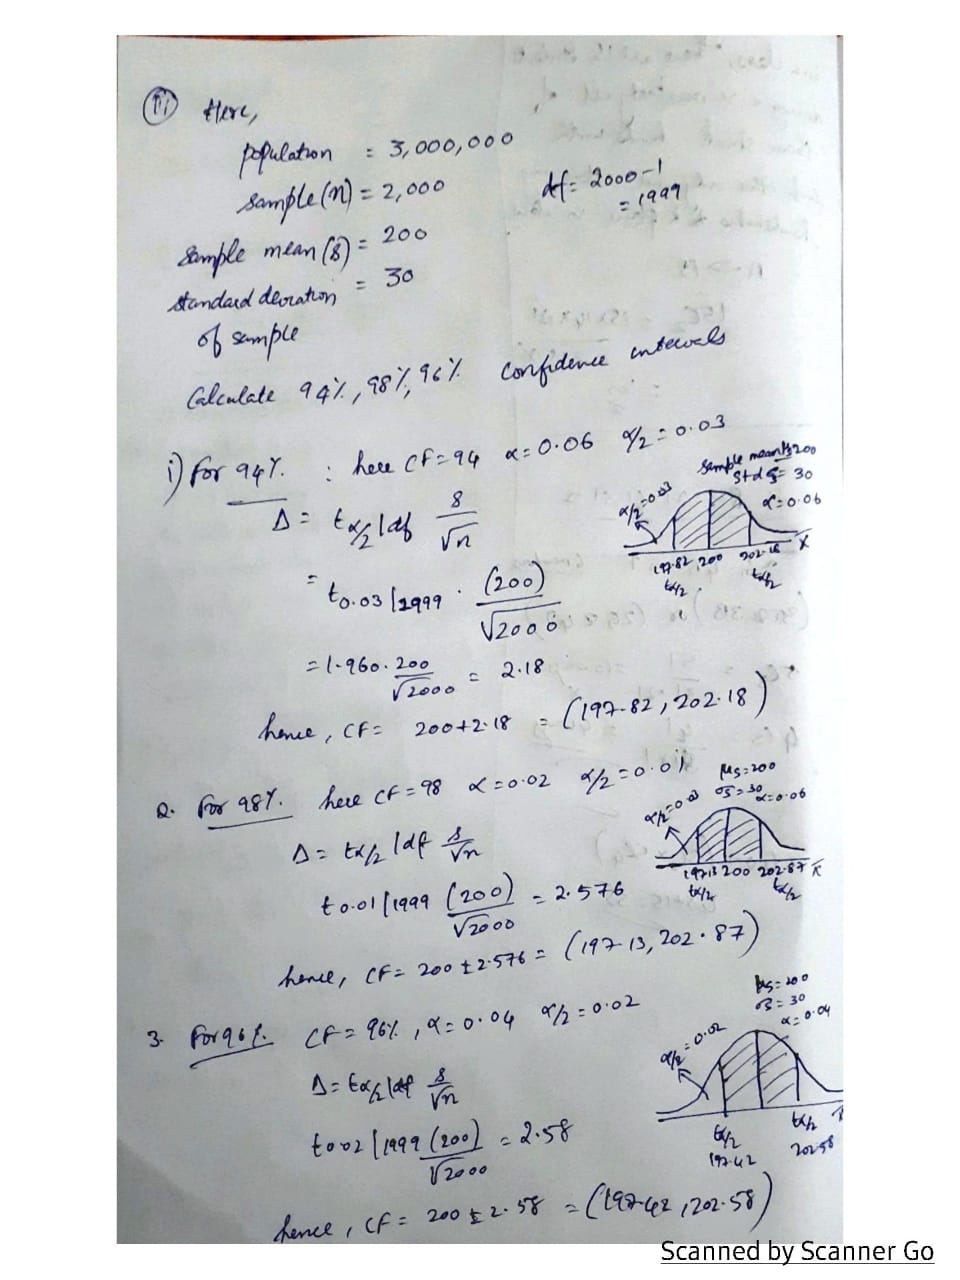 iii Here,
population = 3,000,000
sample (n) = 2,000
df = 2000-1
= 1999
Sample mean (s̄) = 200
standard deviation = 30
of sample
Calculate 94%, 98%, 96% confidence intervals
i) For 94% : here CF=94 α=0.06 α/2=0.03
Δ = tα/2|df s/√n
= t0.03|1999 . (200)/√2000
= 1.960. 200/√2000 = 2.18
hence, CF= 200±2.18 = (197.82, 202.18)
Sample mean 200
std s = 30
α=0.06
α/2=0.03
197.82 200 202.18 x̄
tα/2 tα/2
2. For 98%. here CF=98 α=0.02 α/2=0.01
Δ= tα/2|df s/√n
t0.01|1999 (200)/√2000 = 2.576
hence, CF= 200±2.576 = (197.13, 202.87)
μs=200
σs=30
α=0.06
α/2=0.03
197.13 200 202.87 x̄
tα/2 tα/2
3. For 96%. CF=96%, α=0.04 α/2=0.02
Δ= tα/2|df s/√n
t0.02|1999 (200)/√2000 = 2.58
hence, CF= 200±2.58 = (197.42, 202.58)
μs=200
σs=30
α=0.04
α/2=0.02
tα/2 tα/2
197.42 202.58
Scanned by Scanner Go